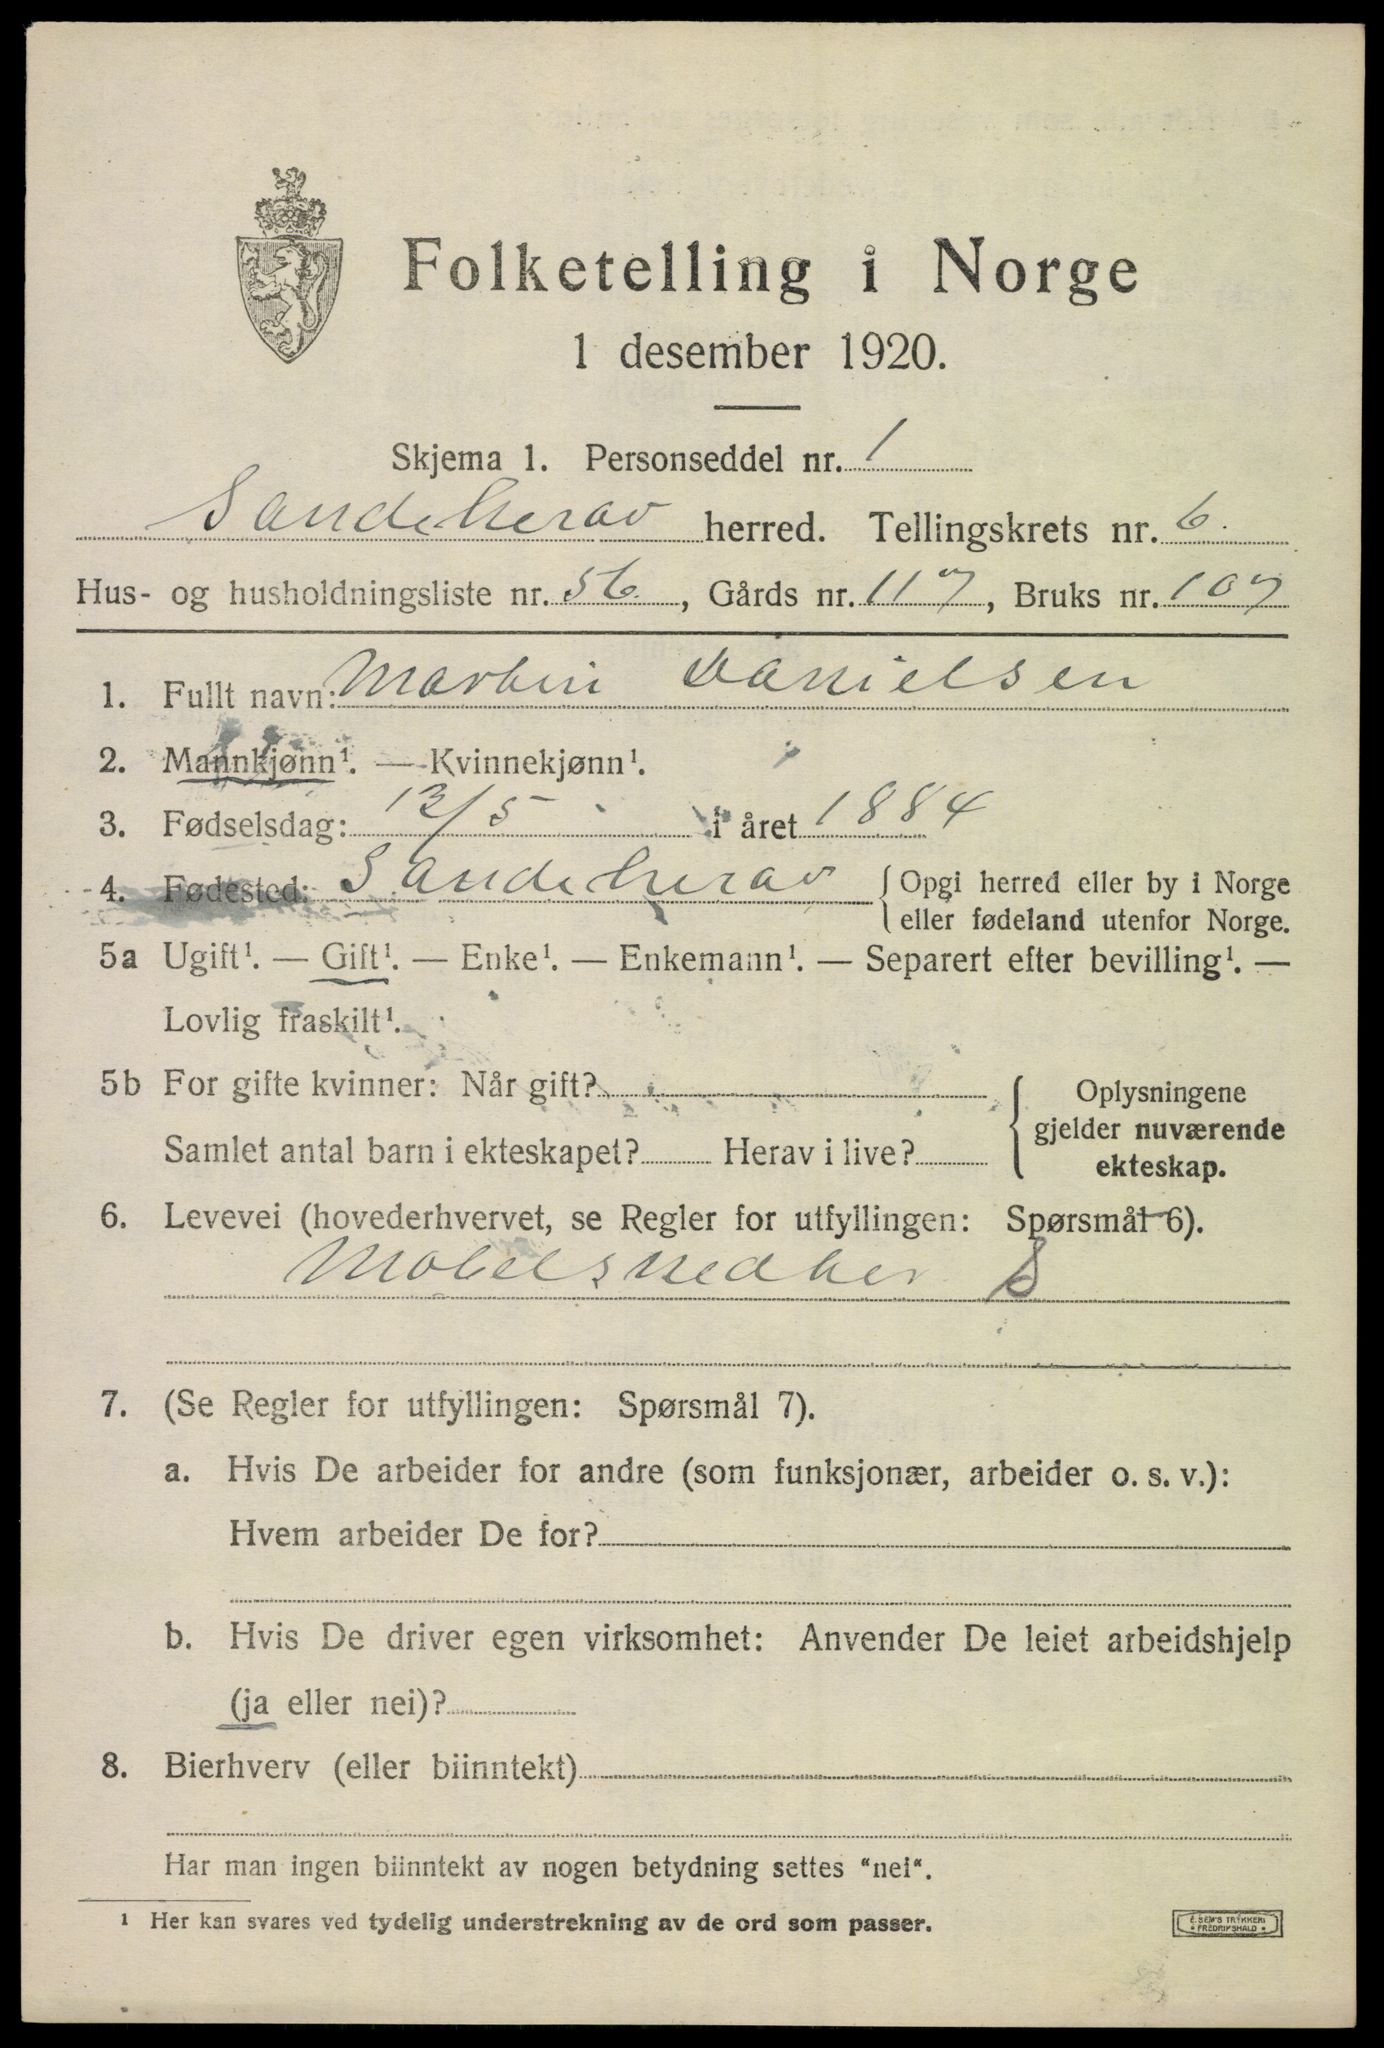 Folketelling i Norge
1 desember 1920.
Skjema 1. Personseddel nr. 1
Sandeherav herred. Tellingskrets nr. 6.
Hus- og husholdningsliste nr. 56, Gårds nr. 117, Bruks nr. 107
1. Fullt navn: Martin Danielsen
2. Mannkjønn¹. — Kvinnekjønn¹.
3. Fødselsdag: 13/5 i året 1884
4. Fødested: Sandeherav { Opgi herred eller by i Norge
eller fødeland utenfor Norge.
5a Ugift¹. — Gift¹. — Enke¹. — Enkemann¹. — Separert efter bevilling¹. —
Lovlig fraskilt¹.
5b For gifte kvinner: Når gift?
Samlet antal barn i ekteskapet? Herav i live?
{ Oplysningene
gjelder nuværende
ekteskap.
6. Levevei (hovederhvervet, se Regler for utfyllingen: Spørsmål 6).
Mobelsnedker S
7. (Se Regler for utfyllingen: Spørsmål 7).
a. Hvis De arbeider for andre (som funksjonær, arbeider o. s. v.):
Hvem arbeider De for?
b. Hvis De driver egen virksomhet: Anvender De leiet arbeidshjelp
(ja eller nei)?
8. Bierhverv (eller biinntekt)
Har man ingen biinntekt av nogen betydning settes "nei".
¹ Her kan svares ved tydelig understrekning av de ord som passer.
E. SEM'S TRYKKERI
• FREDRIKSHALD •